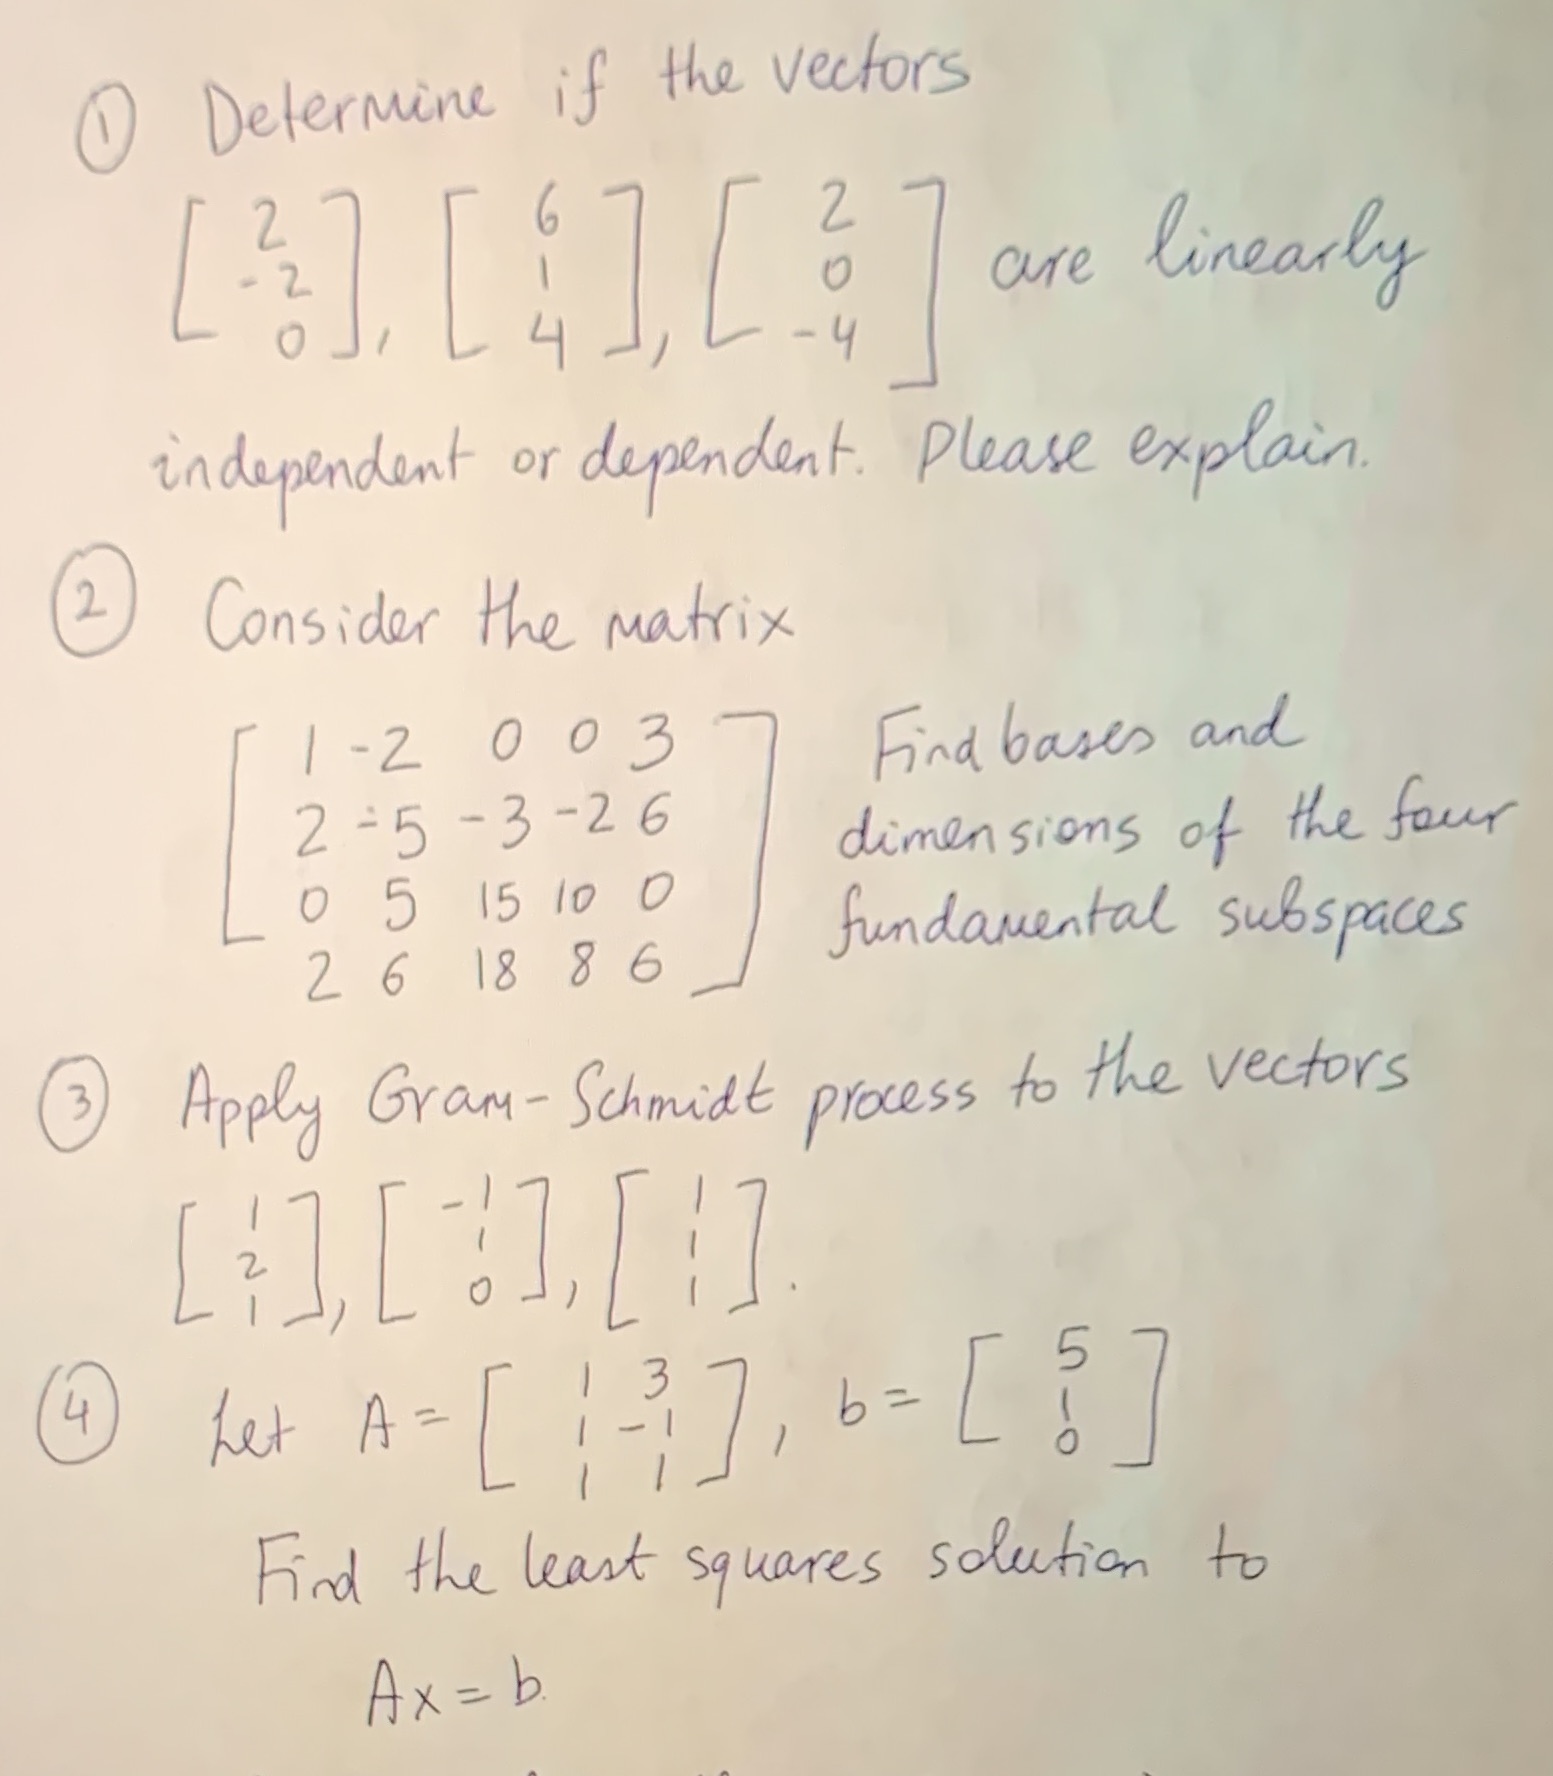 ① Determine if the vectors
[2 -2 0], [6 1 4], [2 0 -4] are linearly
independent or dependent. Please explain.
② Consider the matrix
[1 -2 0 0 3
2 -5 -3 -2 6
0 5 15 10 0
2 6 18 8 6]
Find bases and
dimensions of the four
fundamental subspaces
③ Apply Gram-Schmidt process to the vectors
[1 2 1], [-1 1 0], [1 1 1].
④ Let A = [1 3 1 -1 1 1], b = [5 1 0]
Find the least squares solution to
Ax = b.